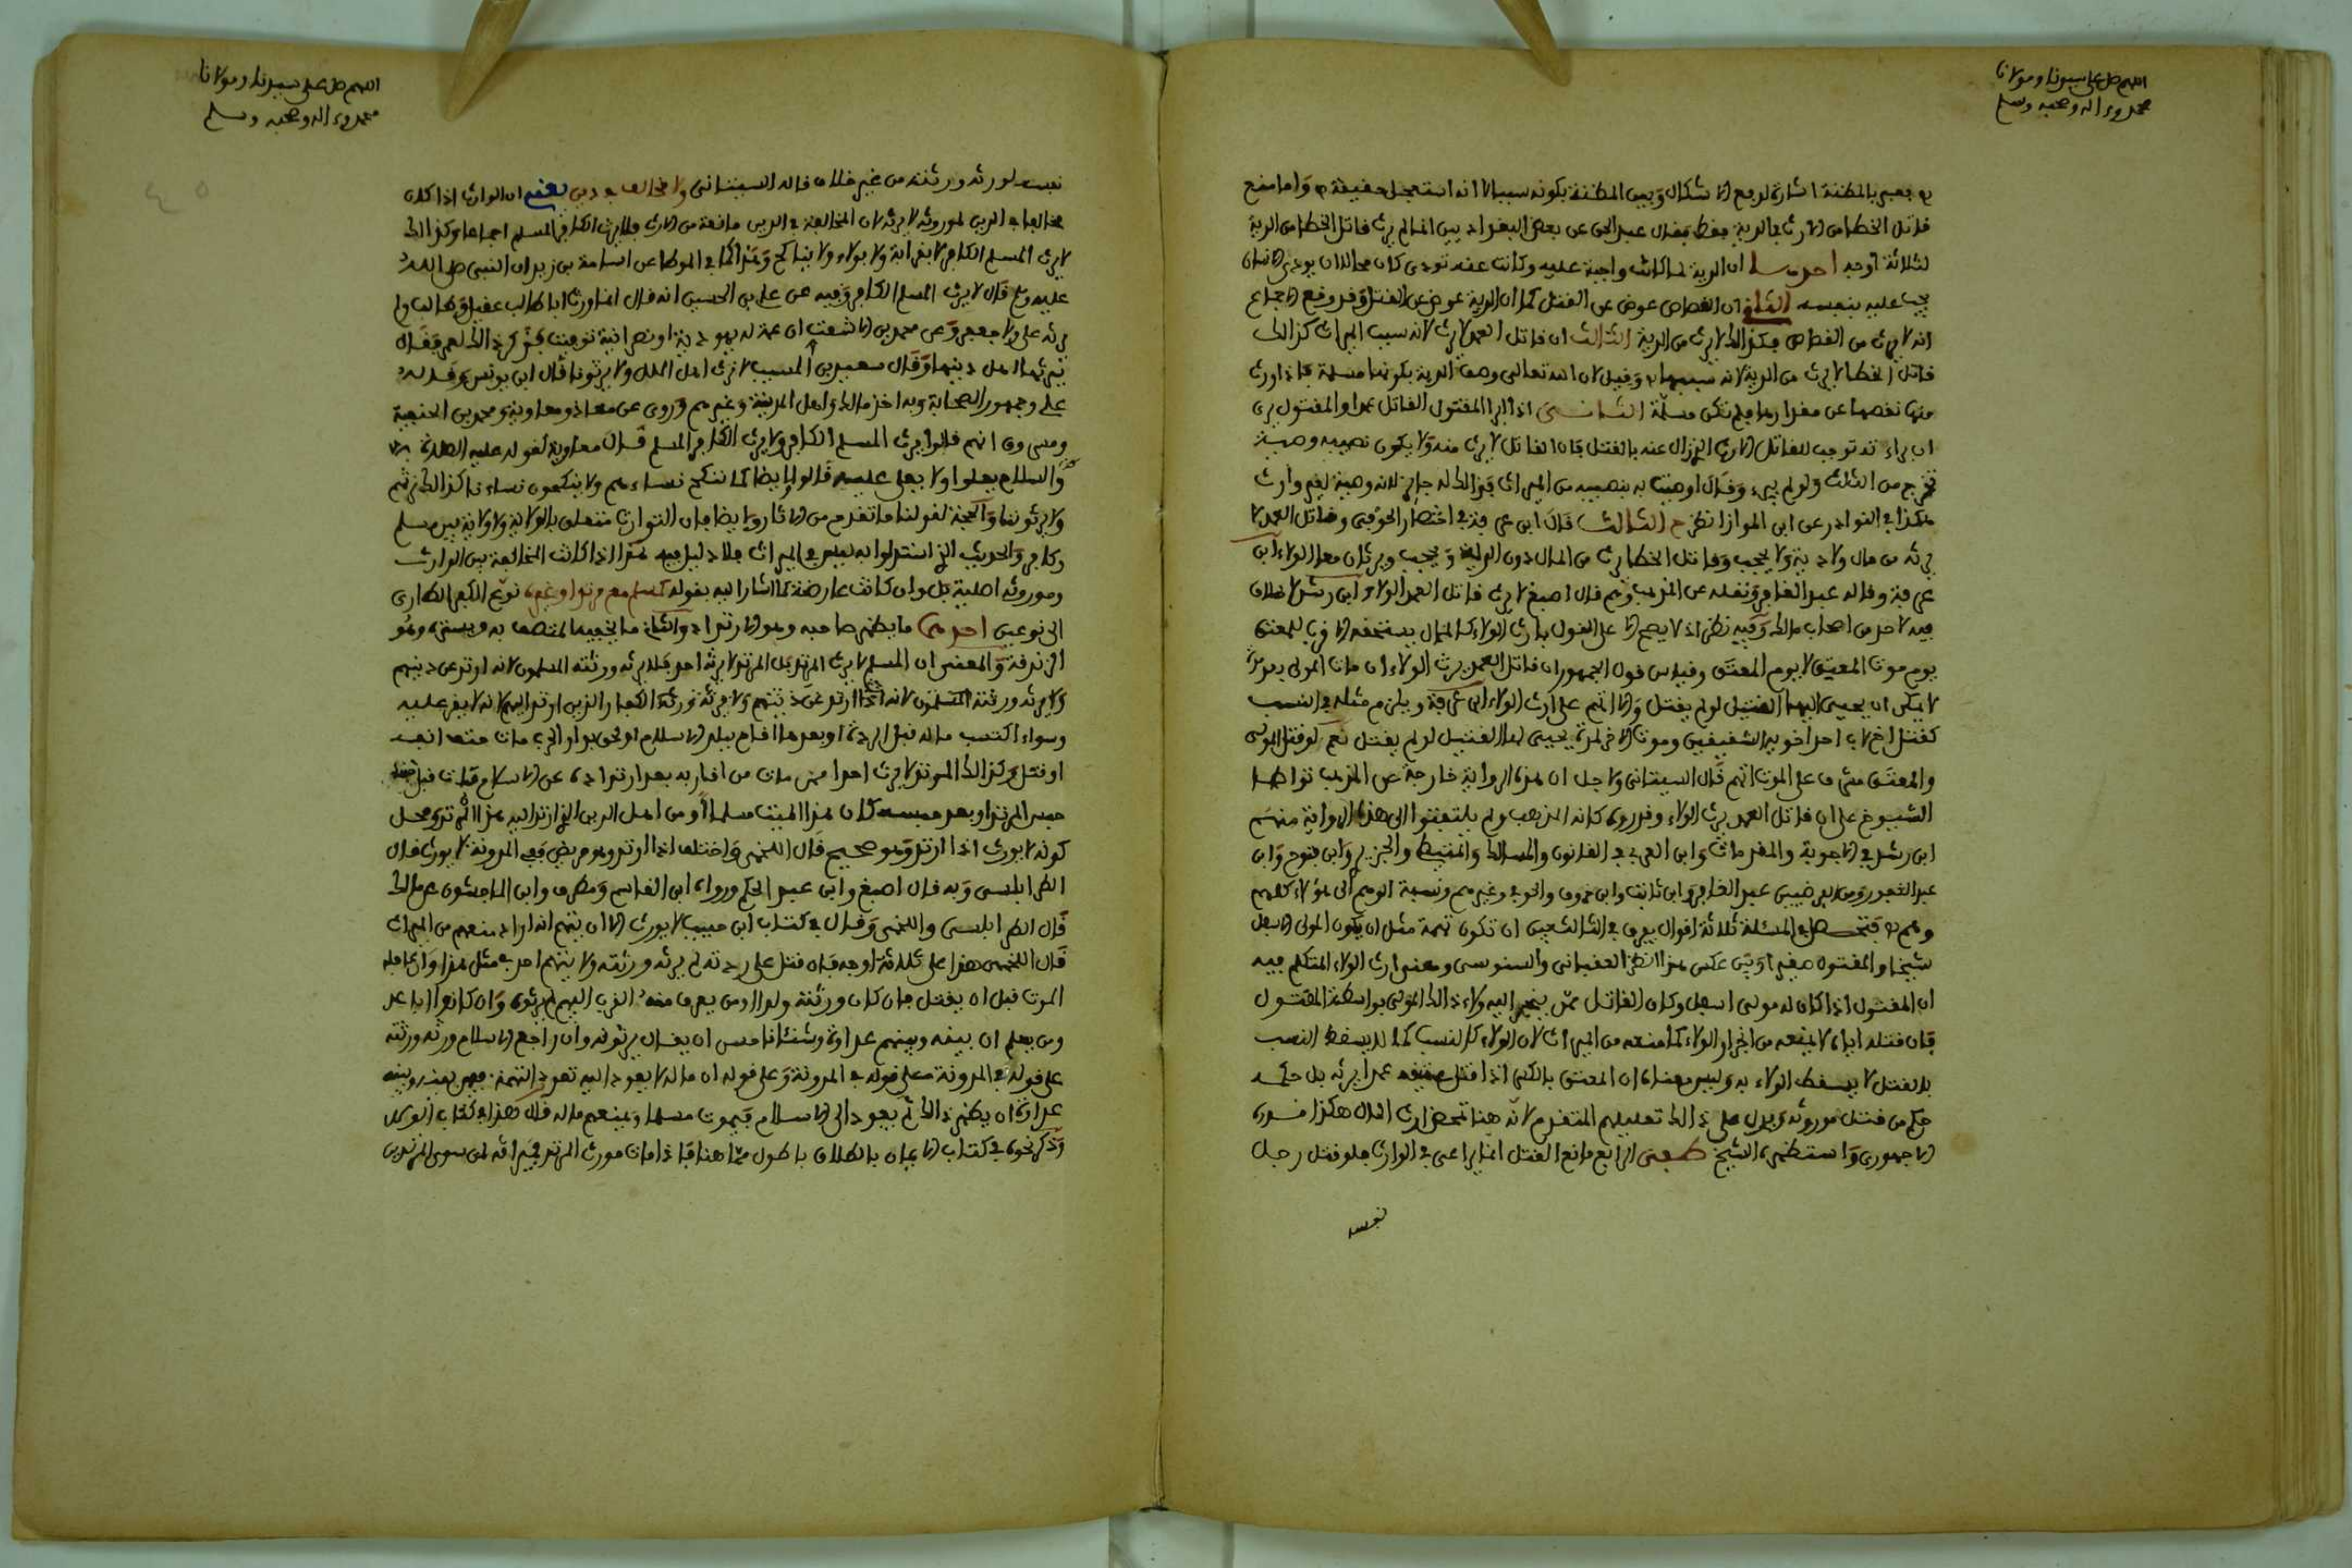 اللهم صل على سيدنا ومولانا
محمد وءاله وصحبه وسلم
فعبر بالمظنة اشارة لدفع الاشكال وبين المظنة بكونه سببا لا انه استعجل حقيقة واما منع
قاتل الخطا من الارث في الدية فقط فقال عبد الحق عن بعض البغداديين انما لم يرث قاتل الخطا من الدية
لثلاثة اوجه احدها ان الدية لما كانت واجبة عليه وكانت عنه تودى كان محالا ان يودي الانسان
يجب عليه بنفسه الثاني ان القصاص عوض عن القتل كما ان الدية عوض عن القتل وقد وقع الاجماع
انه لا يرث من القصاص فكذالك لا يرث من الدية الثالث ان قاتل العمد لا يرث لانه سبب الميراث كذالك
قاتل الخطا لا يرث من الدية لانه سببها وقيل لان الله تعالى وصف الدية بكونها مسلمة فاذا ورث
منها نقصها عن مقدارها فلم تكن مسلمة الثاني اذا ابرا المقتول القاتل عمدا والمقتول يرى
ان براءته توجب للقاتل الارث الزال عنه بالقتل فان القاتل لا يرث منه ولا يكون نصيبه وصية
تخرج من الثلث ولو لم يبرء وقال اوصيت له بنصيبه من الميراث فذالك له جائز لانه وصية لغير وارث
هكذا في النوادر عن ابي المواز انظر ح الثالث قال ابن عرفة في اختصار الحوفي وقاتل العمد لا
يرث من مال ولا دية ولا يحجب وقاتل الخطا يرث من المال دون الدية ويحجب ويرثان معا الولاء ابن
عرفة وقاله عبد الغافر ونقله عن المذهب وهم قال اصبغ لا يرث قاتل العمد الولاء ابن رشد لا خلاف
فيه لاحد من اصحاب مالك وفيه نظر اذ لا يصح الا على القول بارث الولاء كالمال يستحقه الاقرب للمعتق
يوم موت المعتق لا يوم المعتق وقياس قول الجمهور ان قاتل العمد يرث الولاء ان مات المولى بعد مدة
لا يمكن ان يحيى اليها القتيل لو لم يقتل والا اتهم على ارث الولاء ابن عرفة ويلزم مثله في النسب
كقتل اخ لاب احد اخويه الشقيقين وموت الاخر لمدة يحيى لها القتيل لو لم يقتل نعم لو قتل المولى
والمعتق مشرف على الموت اتهم قال السيتاني ولاجل ان هذه الرواية خارجة عن المذهب تواطا
الشيوخ على ان قاتل العمد يرث الولاء وقرروه كانه المذهب ولم يلتفتوا الى هذه الرواية منهم
ابن رشد في الاجوبة والمقدمات وابن العربي في القانون والمسالك والمتيطي والجزيري وابن فتوح وابن
عبد الغفور وعبد الخالق وابن ثابت وابن خروف والحوفي وغيرهم ونسبة الوهم الى هؤلاء كلهم
وهم فتحصل في المسئلة ثلاثة اقوال يفرق في الثالث بين ان تكون تهمة مثل ان يكون المولى الاسفل
شيخا والمقتول صغيرا وبين عكس هذا انظر العقباني والسنوسي ومعنى ارث الولاء المتكلم فيه
ان المقتول اذا كان له مولى اسفل وكان القاتل ممن ينجر اليه ولاء ذالك المولى بواسطة المقتول
فان قتله اياه لا يمنعه من انجرار الولاء كما منعه من الميراث لان الولاء كالنسب كما لا يسقط النسب
بالقتل لا يسقط الولاء به وليس معناه ان المعتق بالكسر اذا قتل عتيقه عمدا يرثه بل حكمه
حكم من قتل موروثه ويدل على ذالك تعليلهم المتقدم لانه هنا تمحض ارث المال هكذا قرره
الاجهوري واستظهره الشيخ مصطفى الرابع مانع القتل انما يراعى في الوارث فلو قتل رجل
نفسه
اللهم صل على سيدنا ومولانا
محمد وءاله وصحبه وسلم
نفسه لورثه ورثته من غير خلاف قاله السيتاني ولا مخالف في دين يعني ان الوارث اذا كان
مخالفا في الدين لموروثه لا يرثه لان المخالفة في الدين مانعة من الارث فلا يرث الكافر المسلم اجماعا وكذالك
لا يرث المسلم الكافر لا بقرابة ولا بولاء ولا بنكاح وهذا كما في الموطا عن اسامة بن زيد ان النبي صلى الله
عليه وسلم قال لا يرث المسلم الكافر وفيه عن علي بن الحسين انه قال انما ورث ابا طالب عقيل وطالب ولم
يرثه علي ولا جعفر وعن محمد بن الاشعث ان عمة له يهودية او نصرانية توفيت فذكر ذالك لعمر فقال
يرثها اهل دينها وقال سعيد بن المسيب لا نرث اهل الملل ولا يرثونا قال ابن يونس وقاله
علي وجمهور الصحابة وبه اخذ مالك واهل المدينة وغيرهم وروى عن معاذ ومعاوية ومحمد بن الحنفية
ومسروق انهم قالوا يرث المسلم الكافر ولا يرث الكافر المسلم قال معاوية لقوله عليه الصلاة
والسلام يعلوا ولا يعلى عليه قالوا ايضا كما ننكح نساءهم ولا ينكحون نساءنا كذالك نرثهم
ولا يرثوننا والحجة لقولنا ما تقدم من الاثار وايضا فان التوارث متعلق بالولاية ولا ولاية بين مسلم
وكافر والحديث الذي استدلوا به ليس في الميراث فلا دليل فيه هذا اذا كانت المخالفة بين الوارث
وموروثه اصلية بل وان كانت عارضة كما اشار اليه بقوله كمسلم مع مرتد او غيره نوع الكفر الطاري
الى نوعين احدهما ما يظهر صاحبه وهو الارتداد والثاني ما يخفيه المتصف به ويستره وهو
الزندقة والمعنى ان المسلم لا يرث المرتد بل المرتد لا يرثه احد فلا يرثه ورثته المسلمون لانه ارتد عن دينهم
ولا يرثه ورثته الكفار الذين ارتد اليهم لانه لا يقر عليه
وسواء اكتسب ماله قبل الردة او بعدها اقام ببلد الاسلام او لحق بدار الحرب مات حتف انفه
او قتل وكذالك المرتد لا يرث احدا ممن مات من اقاربه بعد ارتداده عن الاسلام مات قبل
حبس المرتد او بعد حبسه كان هذا الميت مسلما او من اهل الدين الذي ارتد اليه هذا المرتد ومحل
كونه لا يورث اذا ارتد وهو صحيح قال اللخمي واختلف اذا ارتد وهو مريض ففي المدونة لا يورث قال
الطرابلسي وبه قال اصبغ وابن عبد الحكم ورواه ابن القاسم ومطرف وابن الماجشون عن مالك
قال الطرابلسي واللخمي وقال في كتاب ابن حبيب لا يورث الا ان يتهم انه اراد منعهم من الميراث
قال اللخمي هذا على ثلاثة اوجه فان قتل على ردته لم يرثه ورثته ولا يتهم احد في مثل هذا وان عاجله
الموت قبل ان يقتل فان كان ورثته ولدا او من يعرف منه القرب اليهم لم يرثوه وان كانوا اباعد
ومن يعلم ان بينه وبينهم عداوة وشنئانا حسن ان يقال يرثونه وان راجع الاسلام ورثه ورثته
على قوله في المدونة وعلى قوله ان ماله لا يعود اليه تعود التهمة فيمن بينه وبينه
عداوة ان يظهر ذالك ثم يعود الى الاسلام فيموت مسلما ويمنعهم ماله قال هذا في كتاب الولاء
وذكر نحوه في كتاب الايمان بالطلاق باطول مما هنا فاذا مات مورث المرتد فميراثه لمن سوى المرتد من